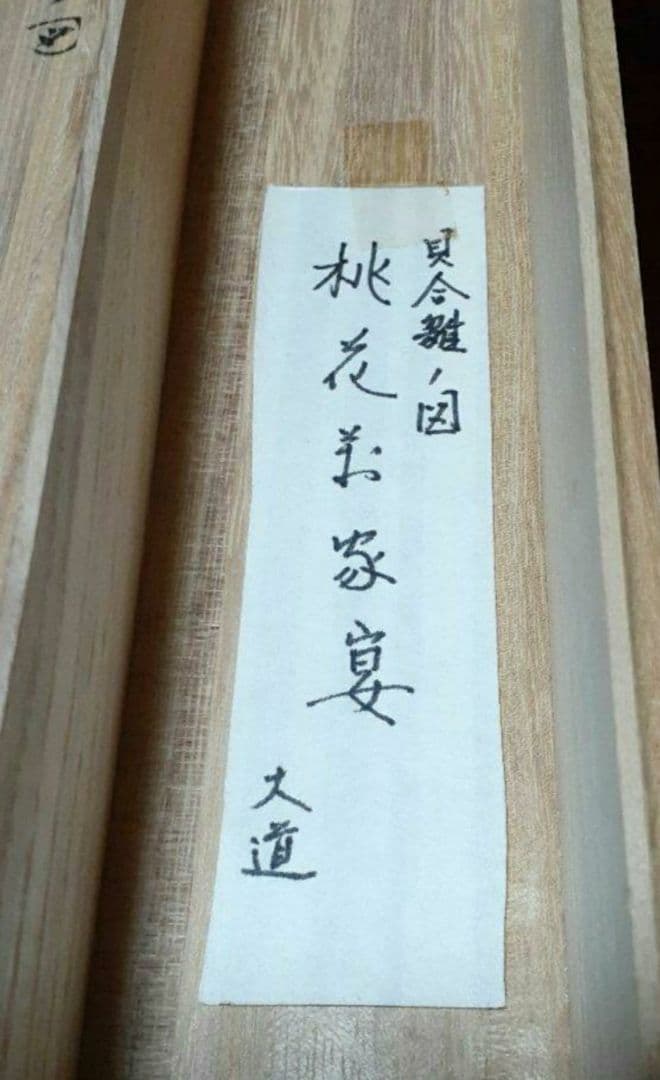 貝合雛ノ図
桃花萬家宴
大道